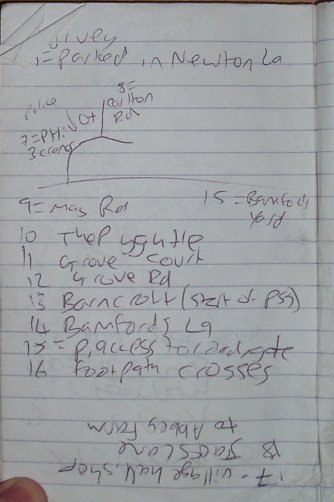 1= Parked in Newton La.
8=
Carlton
Rd
Police
7=PH:
9= May Rd
15 = Bamfords
Yard
10 The Pyghtle
11 Grove Court
12 Grove Rd
13 Barncroft (start of PS9)
14 Bamfords La
15 = P. access to
16 Footpath crosses
17 - village hall, shop
18 Jacks Lane
to Abbey Farm